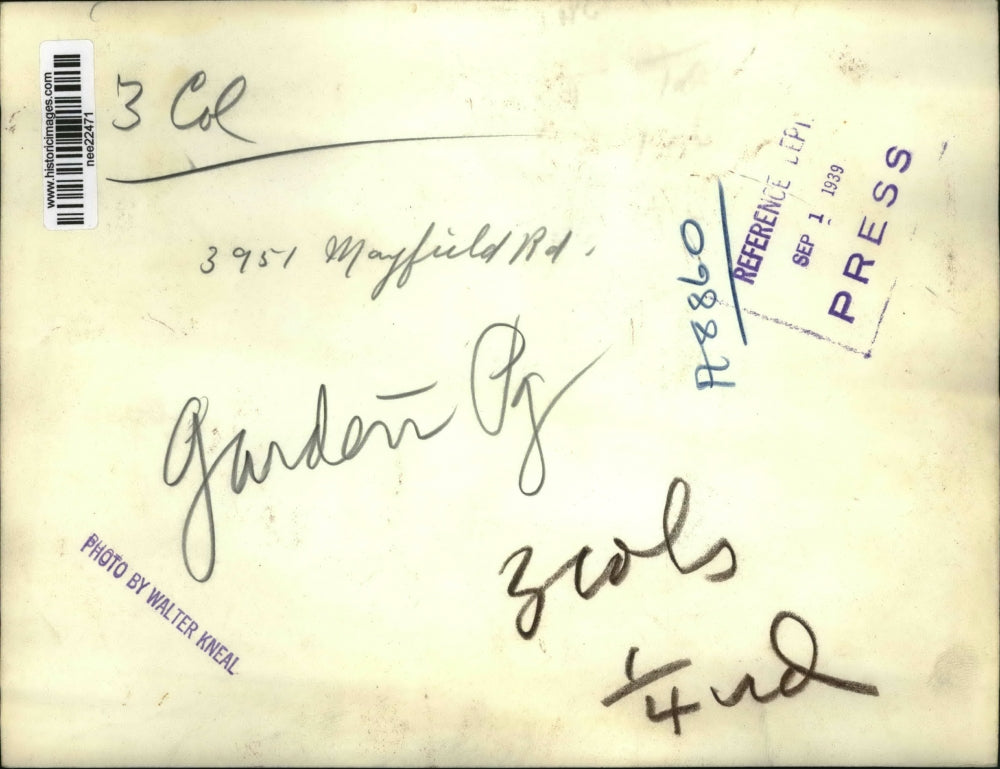 www.historicimages.com
nee22471
3 Col
3951 Mayfield Rd.
Garden Pg
3 cols
1/4
A8860
REFERENCE DEPT.
SEP 1 1939
PRESS
PHOTO BY WALTER KNEAL